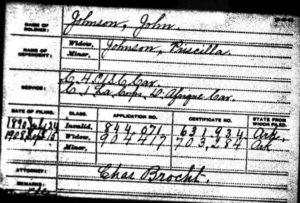 NAME OF SOLDIER: Johnson, John.
NAME OF DEPENDENT: Widow, Johnson, Priscilla.
Minor,
SERVICE:
DATE OF FILING. CLASS. APPLICATION NO. CERTIFICATE NO. STATE FROM WHICH FILED.
1890 Invalid, 844,071 631,934 Ark.
1908 Widow, 904417 703,284 Ark
Minor,
ATTORNEY: Chas Brocht.
REMARKS: